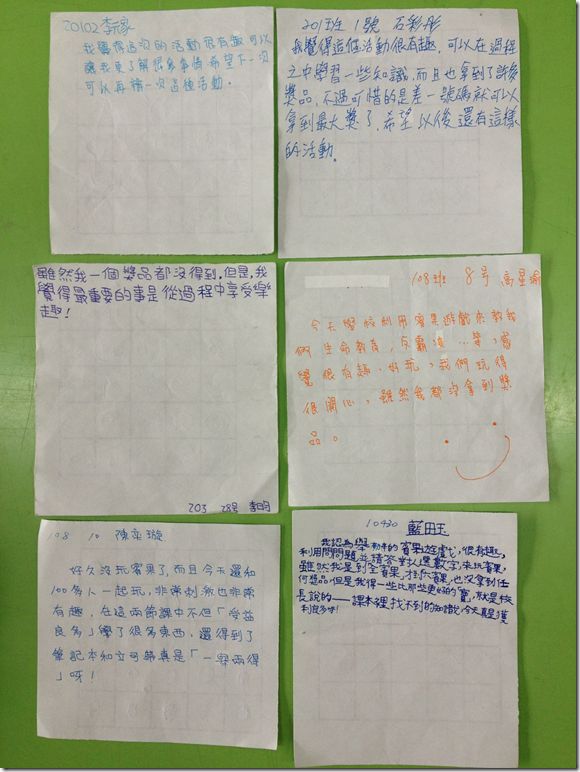 20102 李宗
我覺得這次的活動很有趣可以
讓我更了解很多事情希望下一次
可以再辦一次這種活動.
201班 1號 石彩彤
我覺得這個活動很有趣,可以在過程
之中學習一些知識,而且也拿到了許多
獎品,不過可惜的是差一號碼就可以
拿到最大獎了,希望以後還有這樣
的活動.
雖然我一個獎品都沒得到.但是,我
覺得最重要的事是從過程中享受樂
趣!
203 28号 李
108班 8号 高星瑜
今天學校利用賓果遊戲來教我
們生命教育,反霸凌…等,感
覺很有趣、好玩,我們玩得
很開心,雖然我都沒拿到獎
品。
108 10 陳奕璇
好久沒玩賓果了,而且今天還和
100多人一起玩,非常刺激也非常
有趣.在這兩節課中不但「受益
良多」學了很多東西,還得到了
筆記本和立可帶真是「一舉兩得
」呀!
10430 藍田玉
我認為學動的賓果遊戲,很有趣,
利用問問題並請答對人選數字,來玩賓果,
雖然我是到全賓果,大賓果,也沒拿到任
何獎品,但是我得一些比那些更好的「寶」,就是校
長說的——課本裡找不到的知識,今天真是獲
利良多呀!